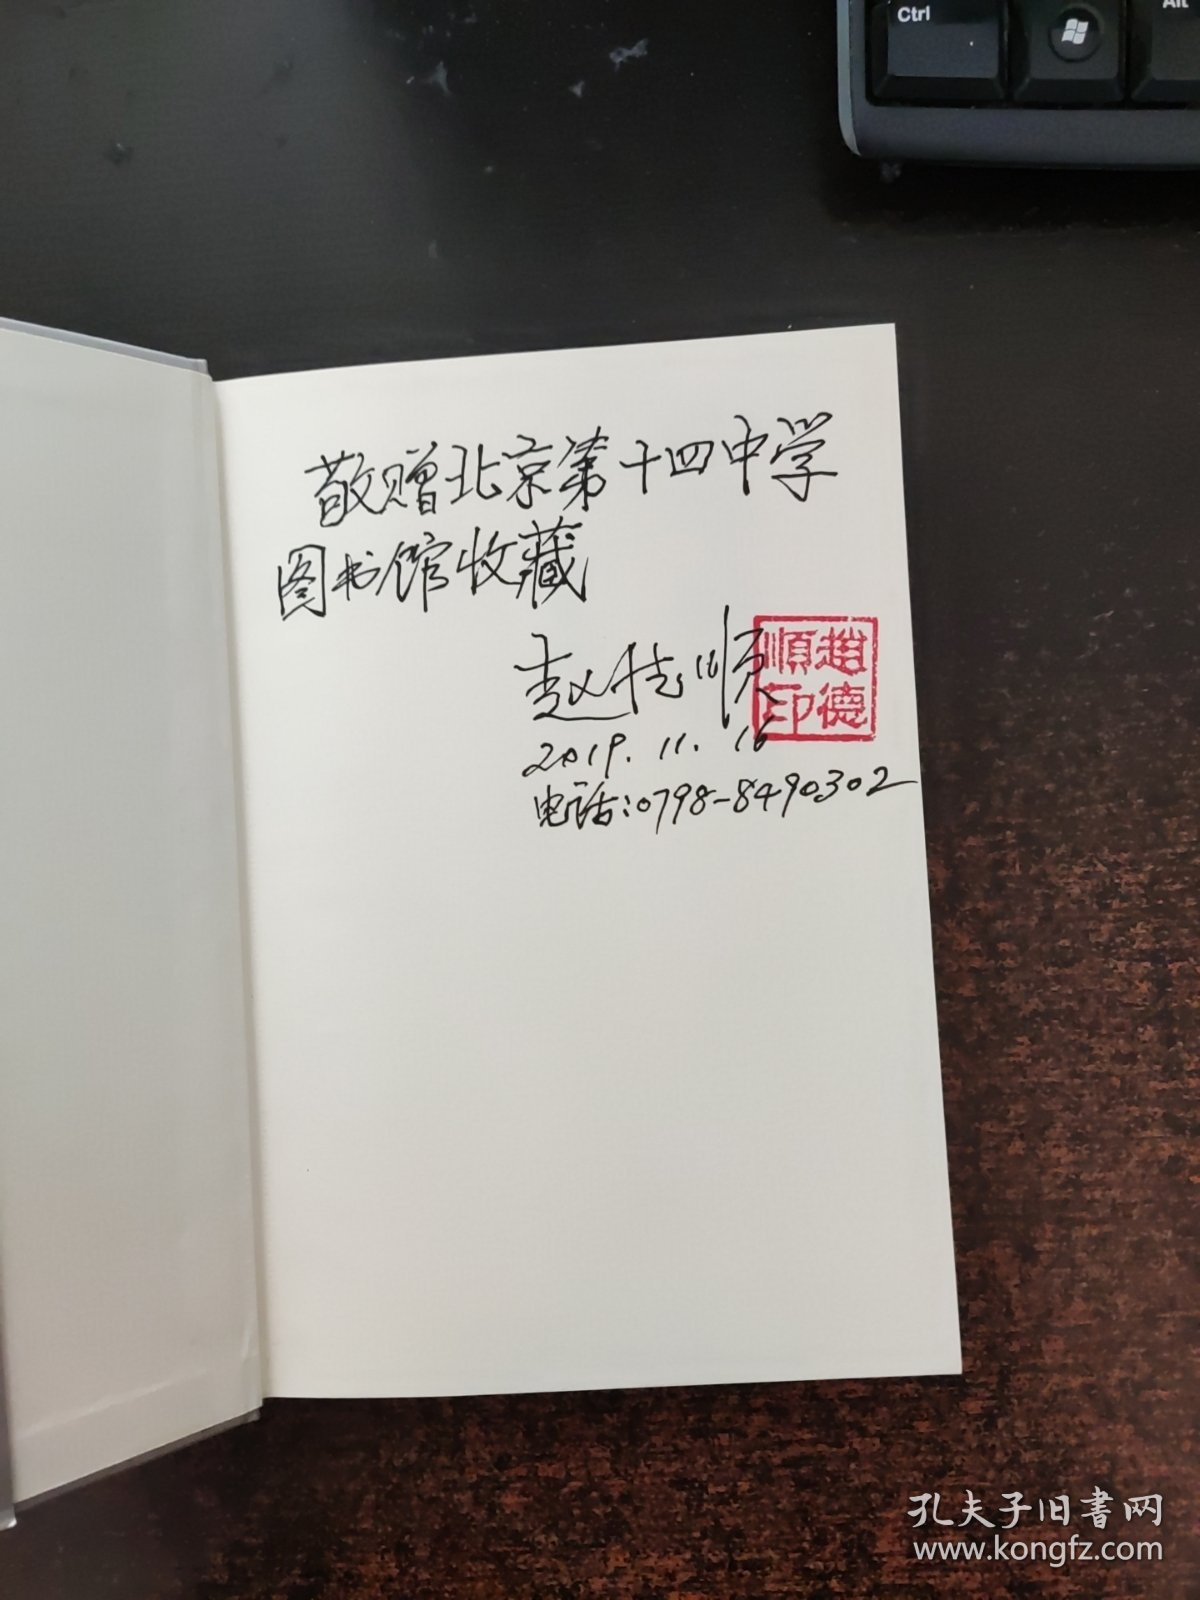 Ctrl
Alt
敬赠北京第十四中学
图书馆收藏
赵德顺
趙德順印
2019.11.16
电话:0798-8490302
孔夫子旧書网
www.kongfz.com